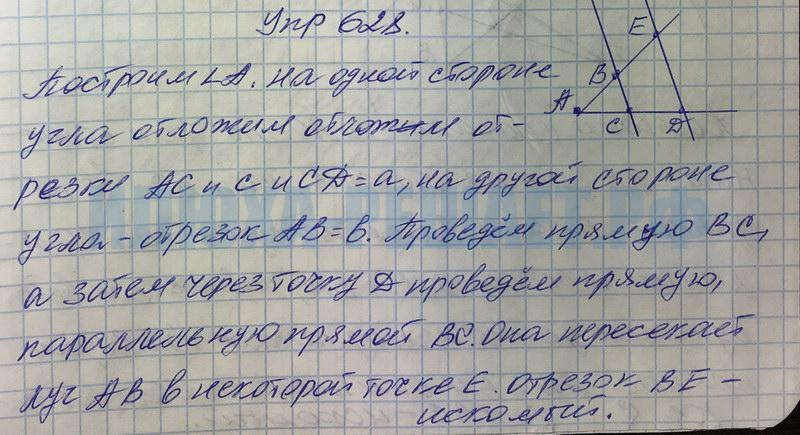 Упр 628.
Построим ∠A. на одной стороне
угла отложим отложим от-
резки AC и C и CD = a, на другой стороне
угла - отрезок AB = в. Проведём прямую BC,
а затем через точку D проведём прямую,
параллельную прямой BC. Она пересекает
луч AB в некоторой точке E. отрезок BE -
искомый.
A
B
E
C
D